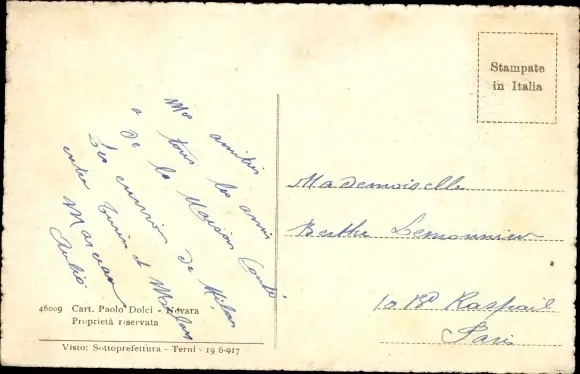 Stampate
in Italia
Mes amitiés
à tous les amis
de la Maison Conti
de Milan
entre Turin et Milan
Mademoiselle
Berthe Lemonnier
10 Bd Raspail
Paris
46009 Cart. Paolo Dolci - Novara
Proprietà riservata
Visto: Sottoprefettura - Terni - 19 6-917